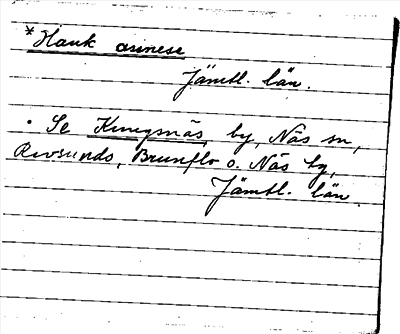 *Hauk arinese
Jämtl. län.
• Se Kungsnäs, by, Näs sn,
Revsunds, Brunflo o. Näs tg,
Jämtl. län.